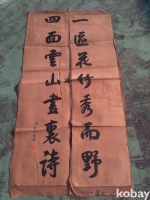 一區花竹秀而野
四面雲山畫裏詩
kobay